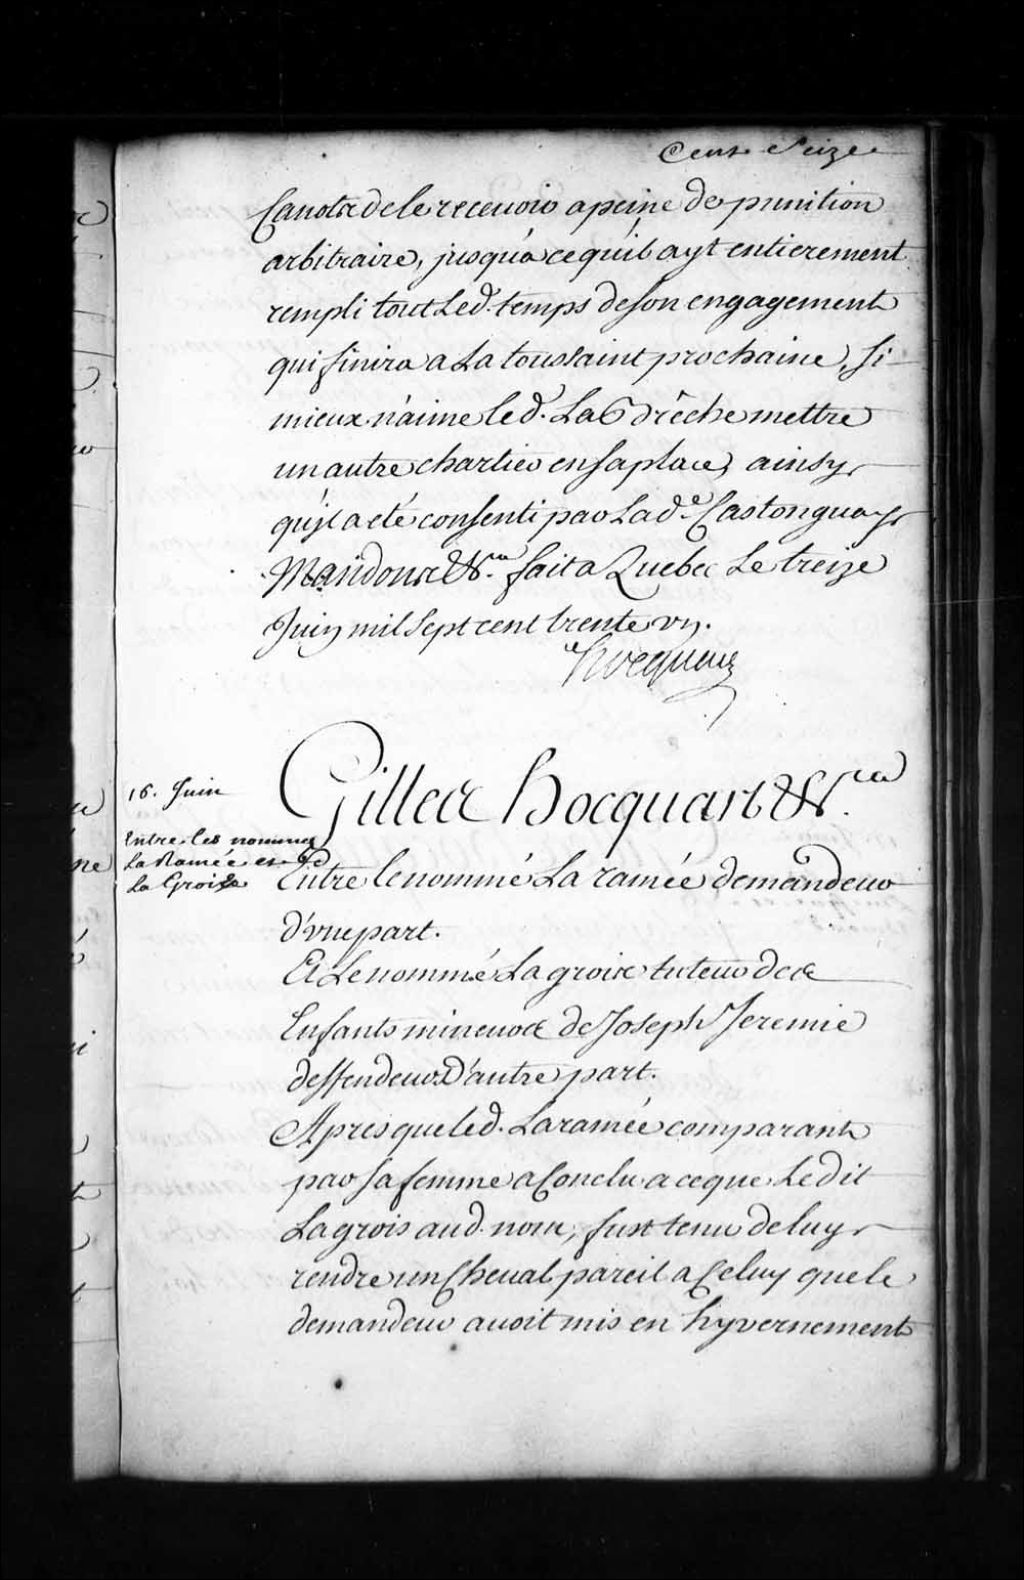 Cent Seize
Canots de le recevoir a peine de punition
arbitraire, jusqu'a ce qu'il ayt entierement
rempli tout Led. temps de son engagement
qui finira a La toussaint prochaine, si
mieux n'aime le d. La Brêche mettre
un autre chartier en sa place, ainsy
qu'il a eté consenti par Lad.e Castonguay
Mandons &c.ra fait a Quebec Le treize
Juin mil sept cent trente un.
Hocquart
Gilles Hocquart &c.ra
16. Juin
Entre les nommez
La Ramée et
La Groix
Entre le nommé La ramée demandeur
d'une part.
Et Le nommé La groix tuteur des
Enfants mineurs de Joseph Jeremie
deffendeur D'autre part.
Apres que led. Laramée comparant
par sa femme a Conclu a ce que Le dit
Lagrois aud. nom, fust tenu de luy
rendre un Cheval pareil a Celuy que le
demandeur avoit mis en hyvernement